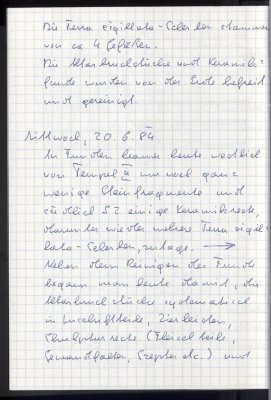 Die Terra sigillata-Scherben stammen
von ca. 4 Gefäßen.
Die Altarbruchstücke und Keramik-
funde wurden von der Erde befreit
und gereinigt.
Mittwoch, 20. 6. 84
An Funden kamen heute westlich
von Tempel II nur noch ganz
wenige Steinfragmente und
südlich S 2 einige Keramikreste,
darunter wieder mehrere Terra sigil-
lata-Scherben, zutage. →
Neben dem Reinigen der Funde
begann man heute damit, die
Altarbruchstücke systematisch
in Inschriftteile, Zierleisten,
Skulpturreste (Fleischteile,
Gewandfalten, Szepter etc.) und